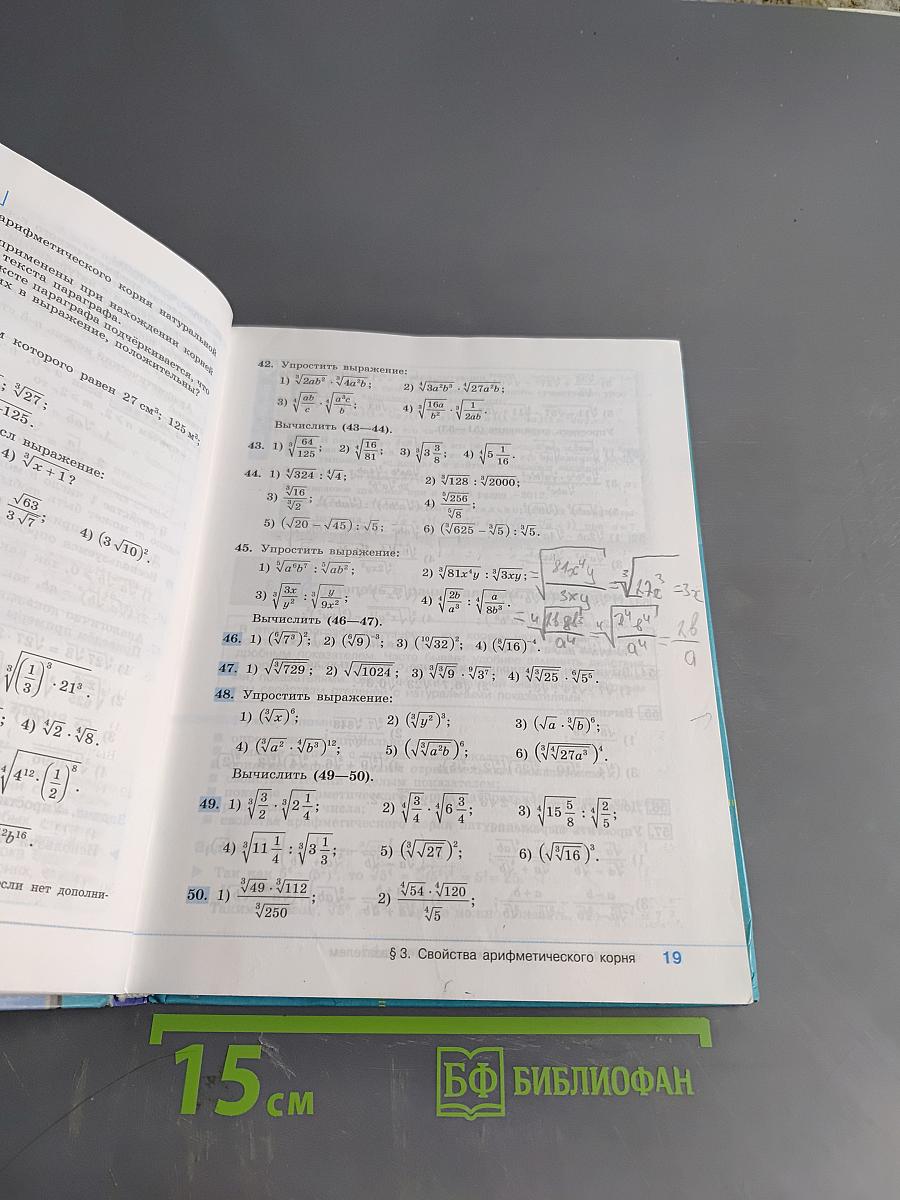 арифметического корня натуральной
применены при нахождении корней
текста параграфа.
ксте параграфа подчёркивается, что
их в выражение, положительны?
которого равен 27 см³; 125 м³;
∛27;
−125.
выражение:
4) ∛(x + 1)?
√63 / (3√7);
4) (3√10)².
∛((1/3)³ · 21³).
4) ∜2 · ∜8.
∜(4¹² · (1/2)⁸).
b¹⁶.
если нет дополни-
42. Упростить выражение:
1) ∛(2ab²) · ∛(4a²b); 2) ∜(3a²b³) · ∜(27a²b);
3) ∜(ab/c) · ∜(a³c/b); 4) ∛(16a/b²) · ∛(1/(2ab)).
Вычислить (43—44).
43. 1) ∛(64/125); 2) ∜(16/81); 3) ∛(3 3/8); 4) ∜(5 1/16).
44. 1) ∜324 : ∜4; 2) ∛128 : ∛2000;
3) ∛16 / ∛2; 4) ⁵√256 / ⁵√8;
5) (√20 − √45) : √5; 6) (∛625 − ∛5) : ∛5.
45. Упростить выражение:
1) ⁵√(a⁶b⁷) : ⁵√(ab²); 2) ∛(81x⁴y) : ∛(3xy); = √(81x⁴y / 3xy) = ∛(27x³) = 3x
3) ∛(3x/y²) : ∛(y/(9x²)); 4) ∜(2b/a³) : ∜(a/(8b³)). = ∜(16b⁴/a⁴) = ∜(2⁴b⁴/a⁴) = 2b/a
Вычислить (46—47).
46. 1) (⁶√7³)²; 2) (⁶√9)⁻³; 3) (¹⁰√32)²; 4) (⁸√16)⁻⁴.
47. 1) √∛729; 2) √√1024; 3) ∛∛9 · ⁹√3⁷; 4) ∜∛25 · ⁶√5⁵.
48. Упростить выражение:
1) (∛x)⁶; 2) (∛y²)³; 3) (√a · ∛b)⁶;
4) (∛a² · ∜b³)¹²; 5) (√∛(a²b))⁶; 6) (∛∜(27a³))⁴.
Вычислить (49—50).
49. 1) ∛(3/2) · ∛(2 1/4); 2) ∜(3/4) · ∜(6 3/4); 3) ∜(15 5/8) : ∜(2/5);
4) ∛(11 1/4) : ∛(3 1/3); 5) (∛√27)²; 6) (√∛16)³.
50. 1) (∛49 · ∛112) / ∛250; 2) (∜54 · ∜120) / ∜5;
§ 3. Свойства арифметического корня 19
15 см
БФ БИБЛИОФАН